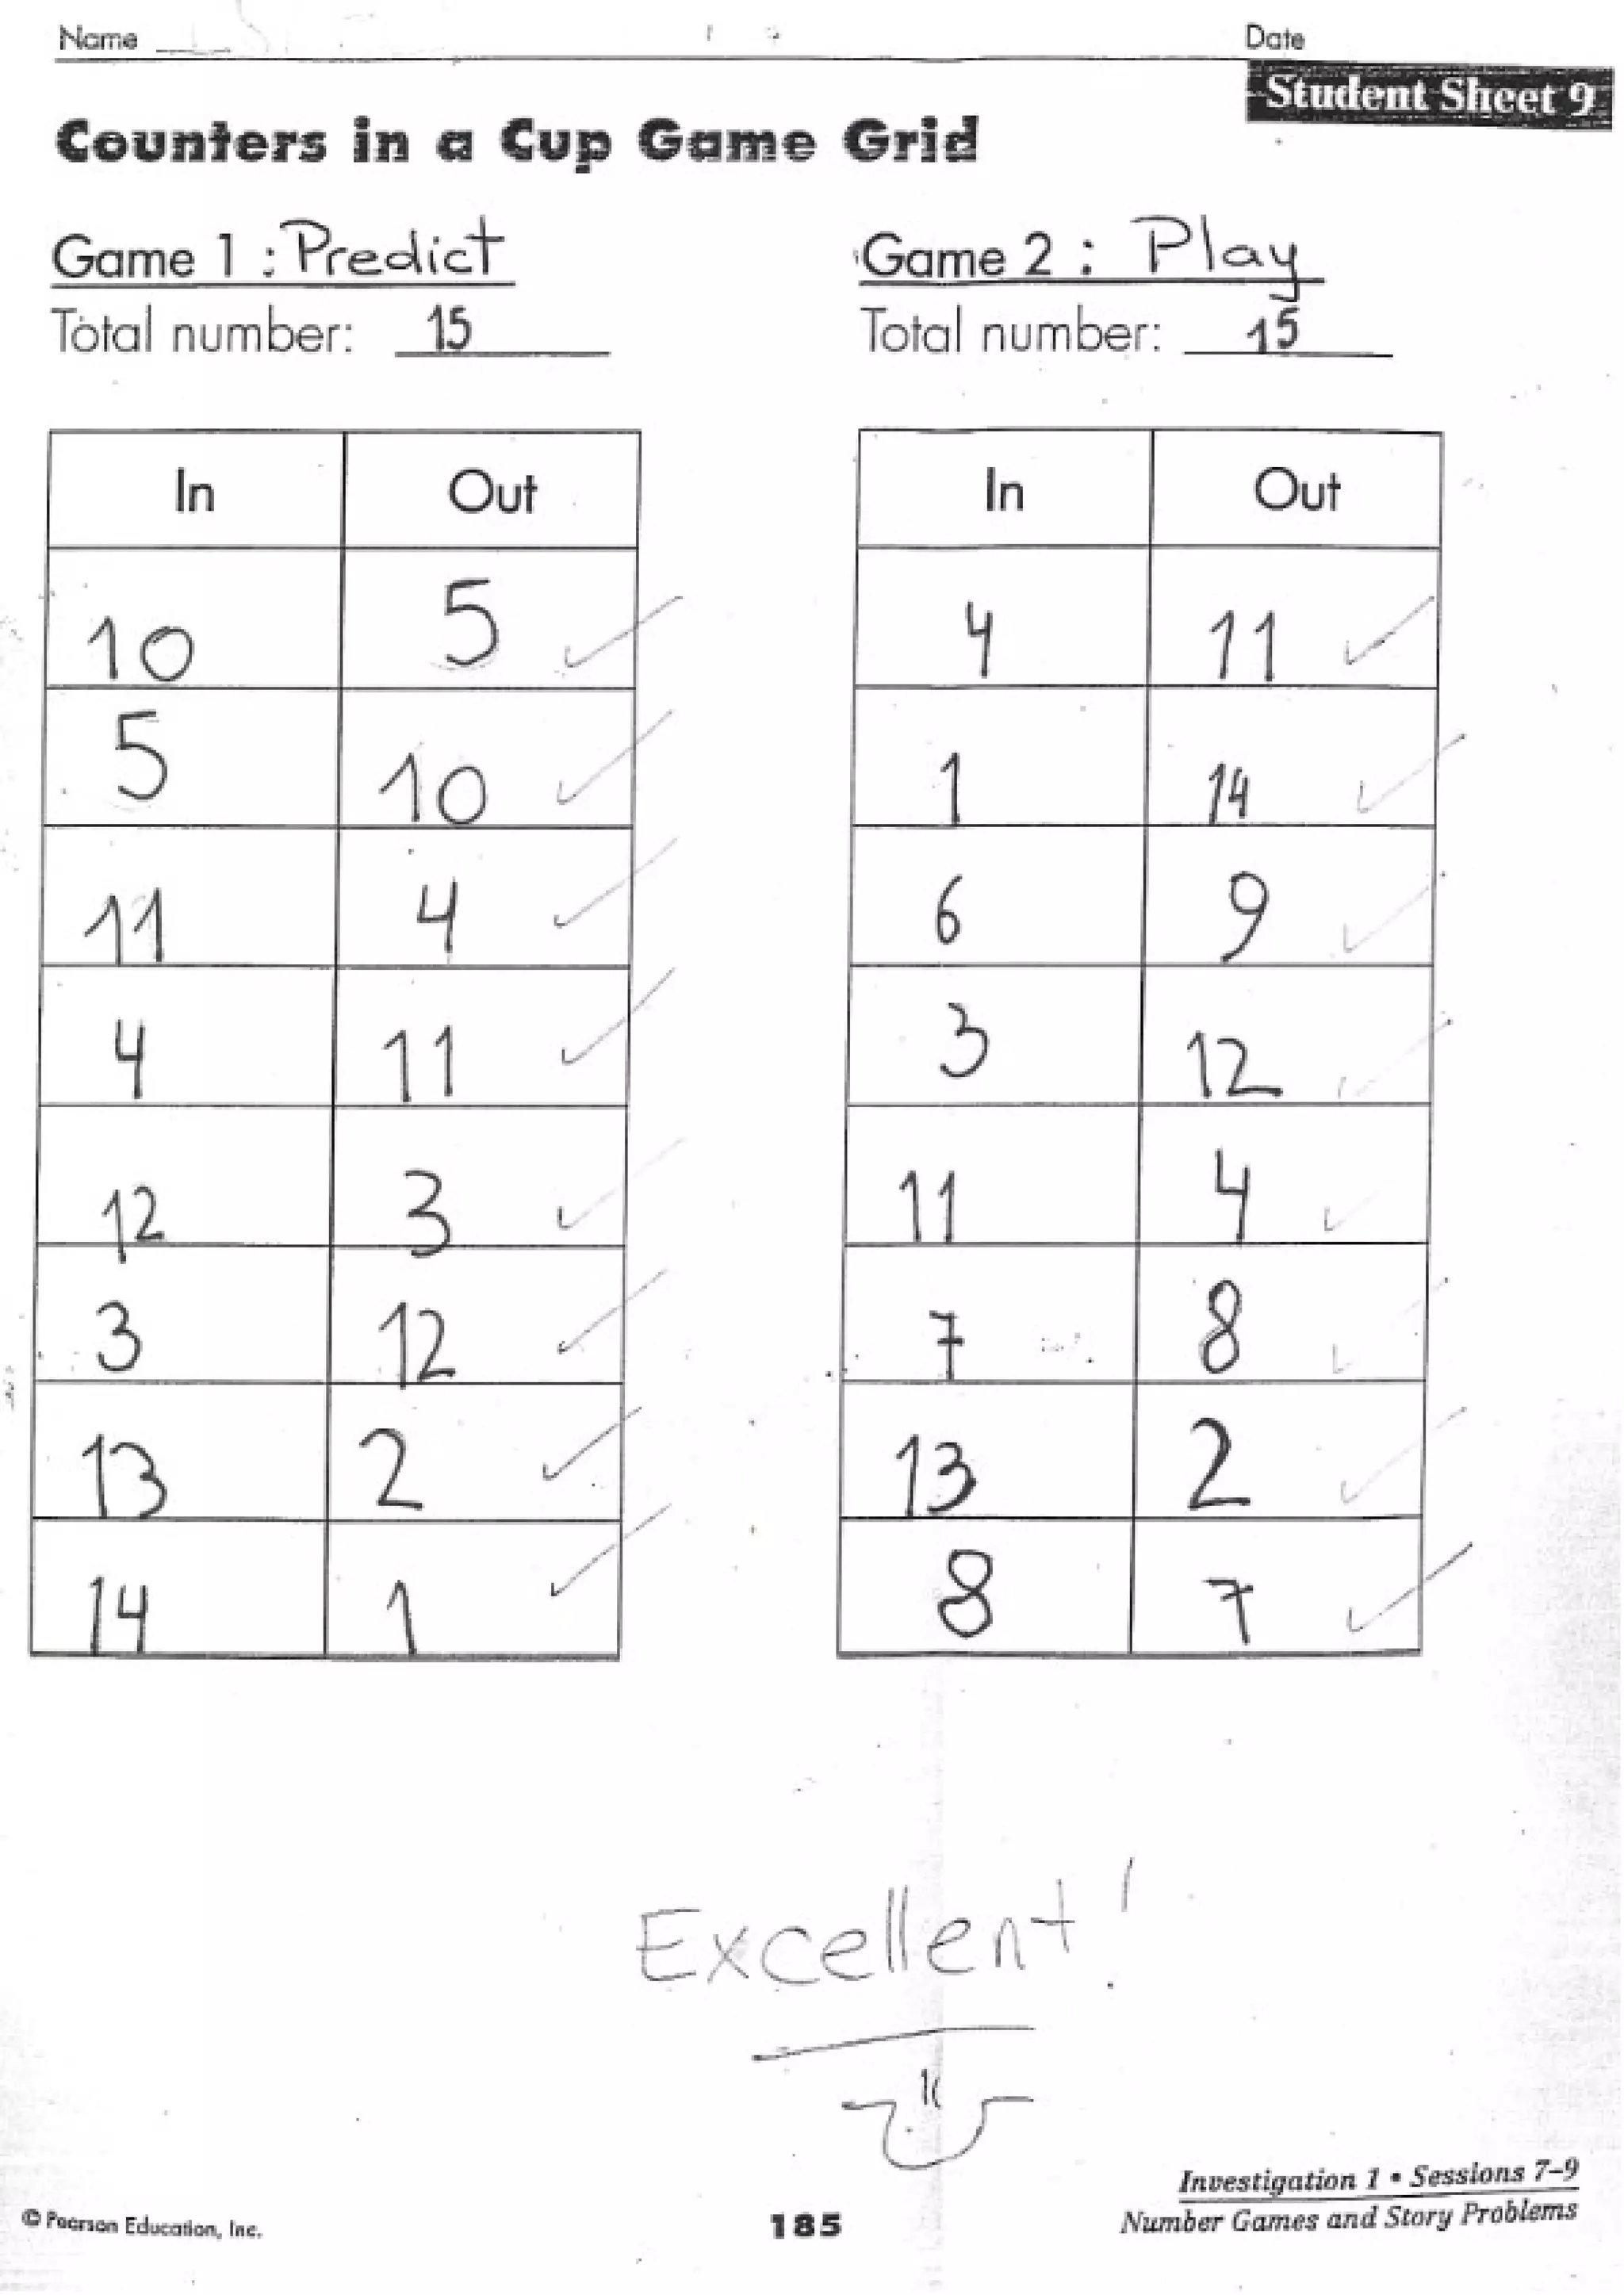 Name
Date
Student Sheet 9
Counters in a Cup Game Grid
Game 1 : Predict
Total number: 15
In Out
10 5
5 10
11 4
4 11
12 3
3 12
13 2
14 1
Game 2 : Play
Total number: 15
In Out
4 11
1 14
6 9
3 12
11 4
7 8
13 2
8 7
Excellent!
Investigation 1 • Sessions 7–9
© Pearson Education, Inc.
185
Number Games and Story Problems